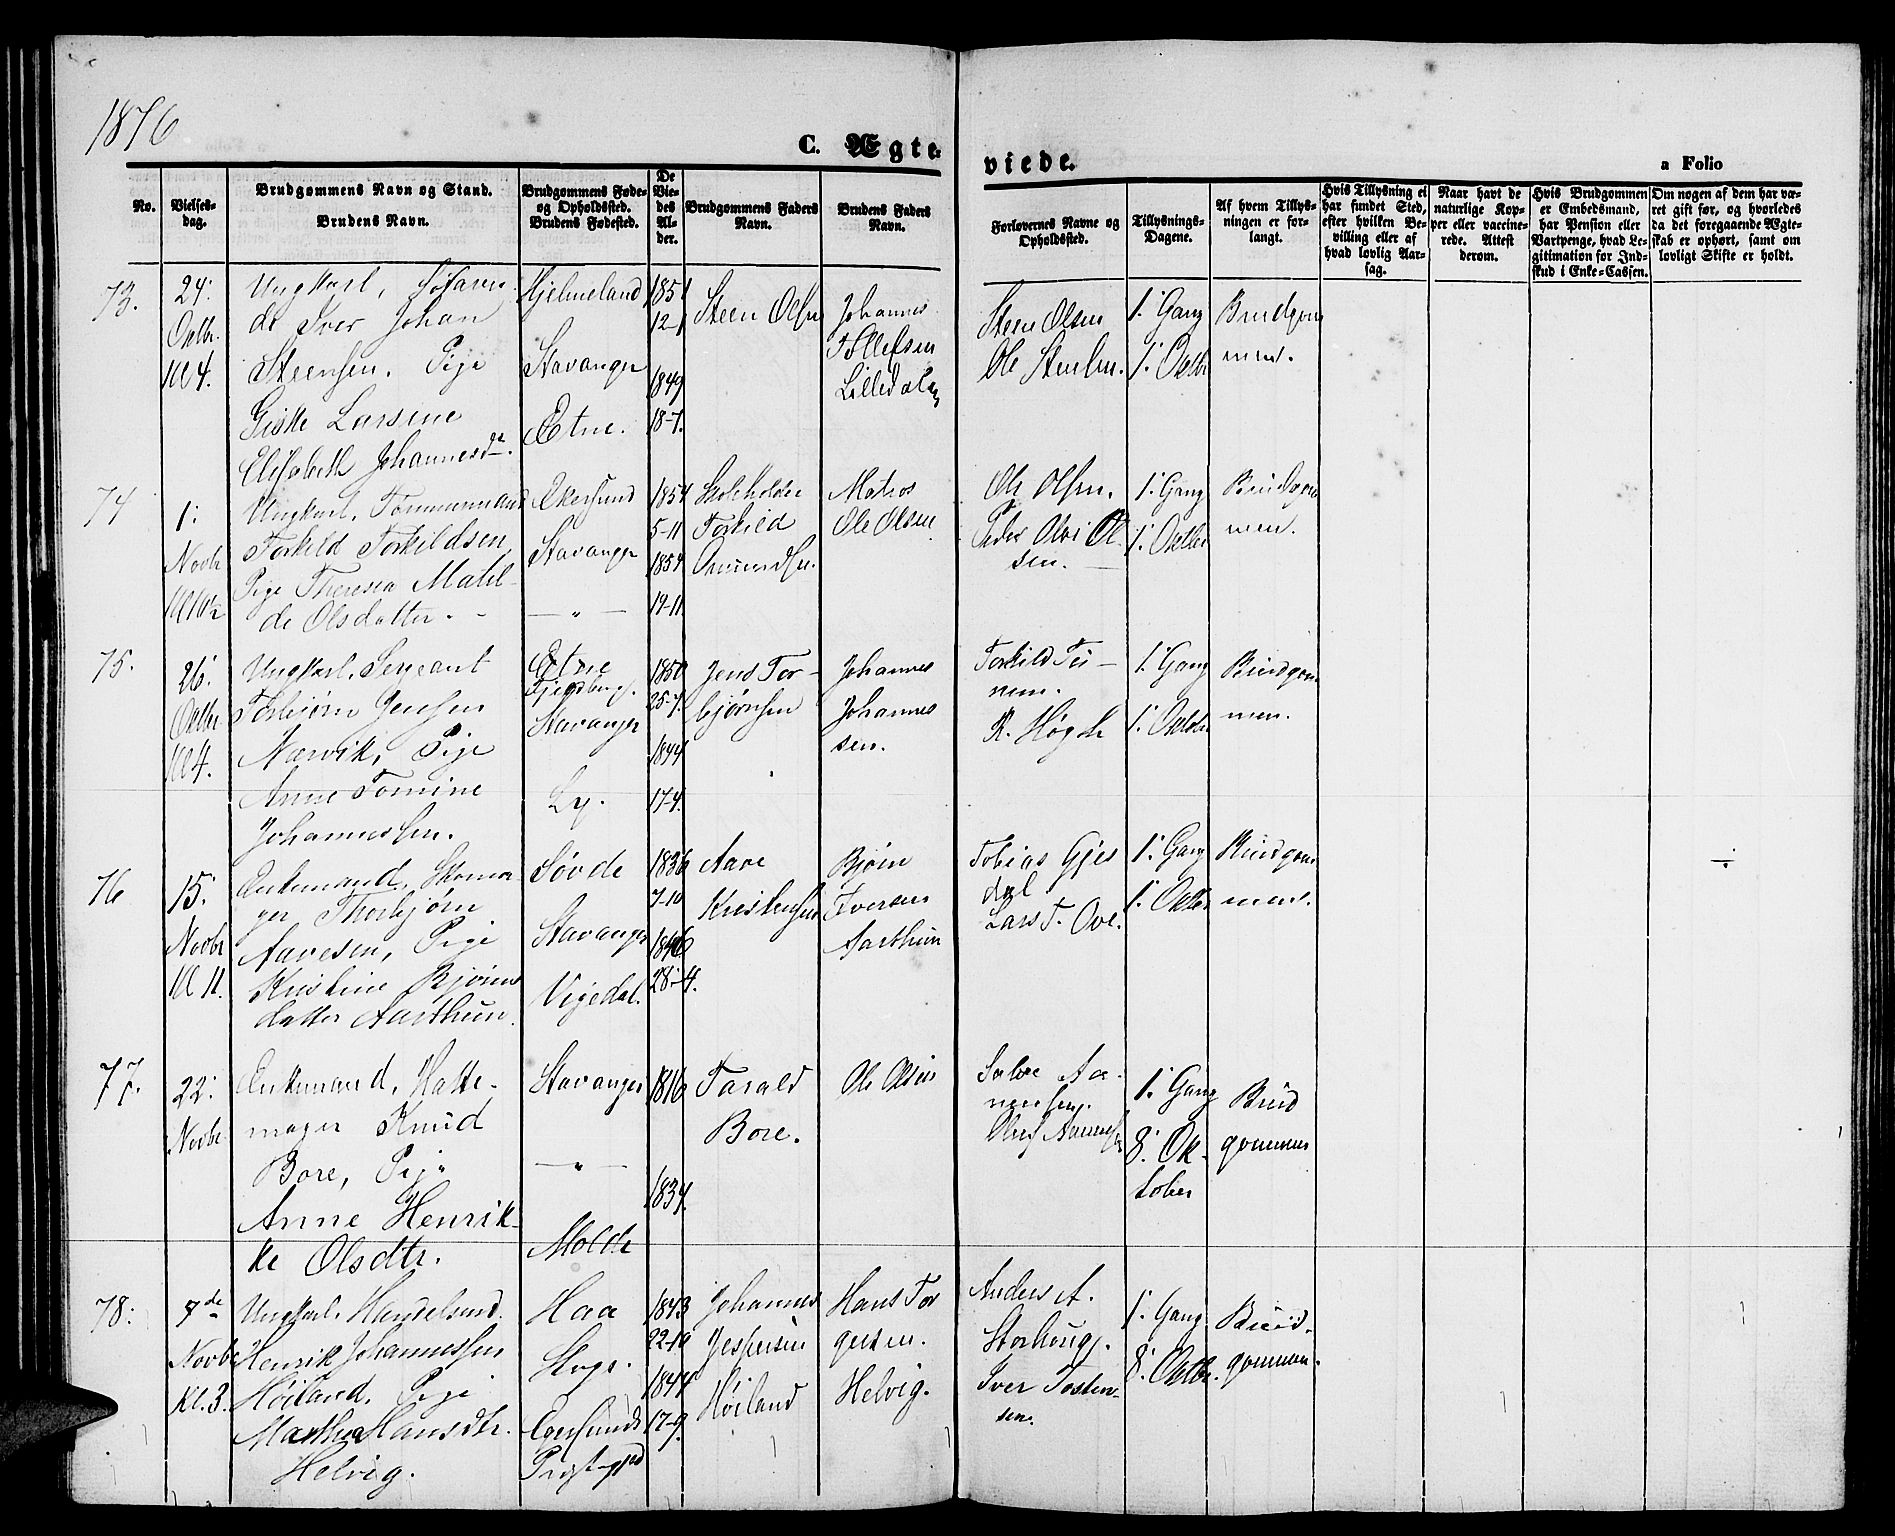 1876
C. Ægte-
viede.
a Folio
No.
Vielses-
dag.
Brudgommens Navn og Stand.
Brudens Navn.
Brudgommens Føde-
og Opholdssted.
Brudens Fødested.
De
Vie-
des
Al-
der.
Brudgommens Faders
Navn.
Brudens Faders
Navn.
Forlovernes Navne og
Opholdssted.
Tillysnings-
Dagene.
Af hvem Tillys-
ningen er for-
langt.
Hvis Tillysning ei
har fundet Sted,
efter hvilken Be-
villing eller af
hvad lovlig Aar-
sag.
Naar havt de
naturlige Kop-
per eller vaccine-
rede. Attest
derom.
Hvis Brudgommen
er Embedsmand,
har Pension eller
Vartpenge, hvad Le-
gitimation for Ind-
skud i Enke-Cassen.
Om nogen af dem har væ-
ret gift før, og hvorledes
da det foregaaende Ægte-
skab er ophørt, samt om
lovligt Skifte er holdt.
73.
24.
Octbr.
Kl 4.
Ungkarl,
de Iver Johan
Steensen. Pige
Giske Larsine
Elisabeth Johannesd.
Hjelmeland
Stavanger
Etne.
1851
12-1
1849
18-7.
Steen Olsen
Johannes
Tollefsen
Lilledalen
Steen Olsen
Ole Steensen.
1. Gang
1. Octbr
Brudgom
men.
74
1.
Novbr
Kl 10½
Ungkarl, Tømmermand
Torkild Torkildsen
Pige Theresea Matil-
de Olsdatter. -
Ekersund
Stavanger
— „ —
1854
5-11
1854
19-11
Torkild
Matros
Ole Olsen
Ole Olsen.
Peder Olai Ol-
sen. —
1. Gang
1. Octbr
Brudgom
men.
75.
26.
Octbr
Kl 4.
Ungkarl, Sergeant
Torbjørn Jensen
Nærvik, Pige
Anne Tomine
Johannessen.
Etne
Fjeldberg.
Stavanger
Ly.
1850
25-7.
1844
17-4.
Jens Tor-
bjørnsen
Johannes
Johannes
sen.
Torkild Tei-
nem.
R. Høgh
1. Gang
1. Octbr
Brudgom
men.
76
15.
Novbr
Kl 11.
Enkemand, Skoma-
ger Thorbjørn
Aavesen, Pige
Kristine Bjørns
datter Aarthun.
Søvde
Stavanger
Vigedal.
1836
7-10
1846
28-4.
Aave
Kristensen
Bjørn
Iversen
Aarthun
Tobias Gjes
dal
Lars T. Ove.
1. Gang
1. Octbr
Brudgom
men.
÷
77.
22.
Novbr
Enkemand, Hatte-
mager Knud
Bore, Pige
Anne Henrik-
ke Olsdtr.
Stavanger
— „ —
Molde
1816
1834.
Tarald
Bore.
Ole Olsen
1. Gang
8. Ok-
tober
Brud
gommen
78.
7de
Novbr
Kl. 3.
Ungkarl, Handelsmd.
Henrik Johannessen
Høiland, Pige
Martha Hansdtr.
Helvig.
Haa
Egersunds
Præstegjeld
1843
22-10
1844
17-9.
Johannes
Jespersen
Høiland
Hans Tor
gersen.
Helvig.
Anders A.
Storhoug.
Iver Tosten-
sen.
1. Gang
8. Octbr.
Brud-
gommen.